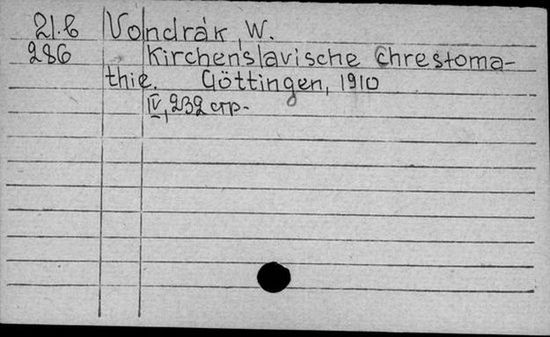 21.6 Vondrák, W.
286 Kirchenslavische Chrestoma-
thie. Göttingen, 1910
IV, 232 стр.